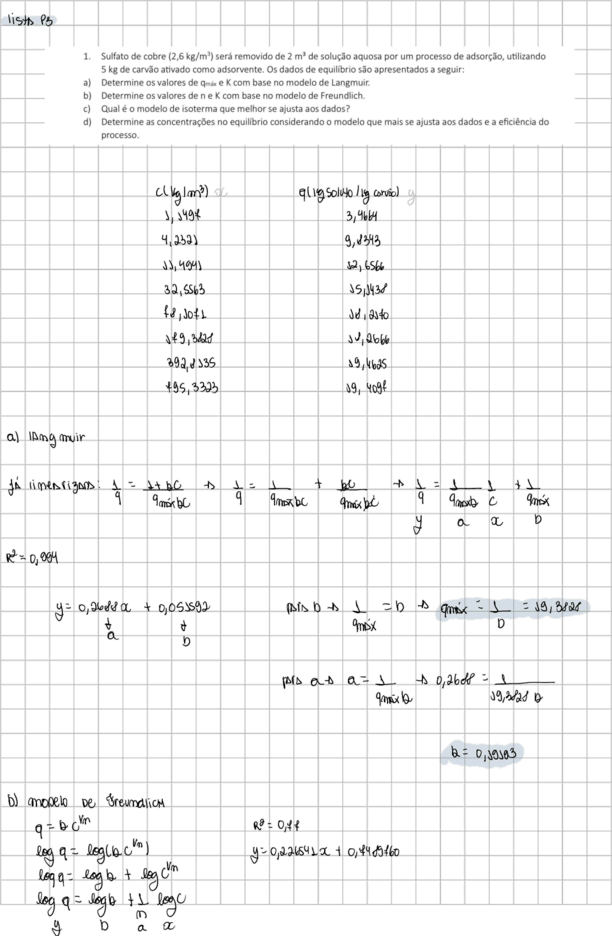 lista P3
1. Sulfato de cobre (2,6 kg/m³) será removido de 2 m³ de solução aquosa por um processo de adsorção, utilizando
5 kg de carvão ativado como adsorvente. Os dados de equilíbrio são apresentados a seguir:
a) Determine os valores de qmáx e K com base no modelo de Langmuir.
b) Determine os valores de n e K com base no modelo de Freundlich.
c) Qual é o modelo de isoterma que melhor se ajusta aos dados?
d) Determine as concentrações no equilíbrio considerando o modelo que mais se ajusta aos dados e a eficiência do
processo.
C(kg/m³) x q(kg soluto/kg carvão) y
1,1497 3,4664
4,2321 9,8343
11,4941 12,6566
32,5563 15,1438
78,1071 18,2170
179,3828 18,2666
392,8135 19,4625
795,3323 19,4097
a) langmuir
já linearizada: 1/q = 1+bC/qmáxbC → 1/q = 1/qmáxbC + bC/qmáxbC → 1/q = 1/qmáxb 1/C + 1/qmáx
y a x b
R² = 0,994
y = 0,2688x + 0,051592 para b → 1/qmáx = b → qmáx = 1/b = 19,3828
a b
para a → a = 1/qmáxb → 0,2688 = 1/19,3828 b
b = 0,19193
b) modelo de Freundlich
q = bC^1/n R² = 0,77
log q = log(bC^1/n) y = 0,226541x + 0,7489760
log q = log b + log C^1/n
log q = log b + 1/n log C
y b a x